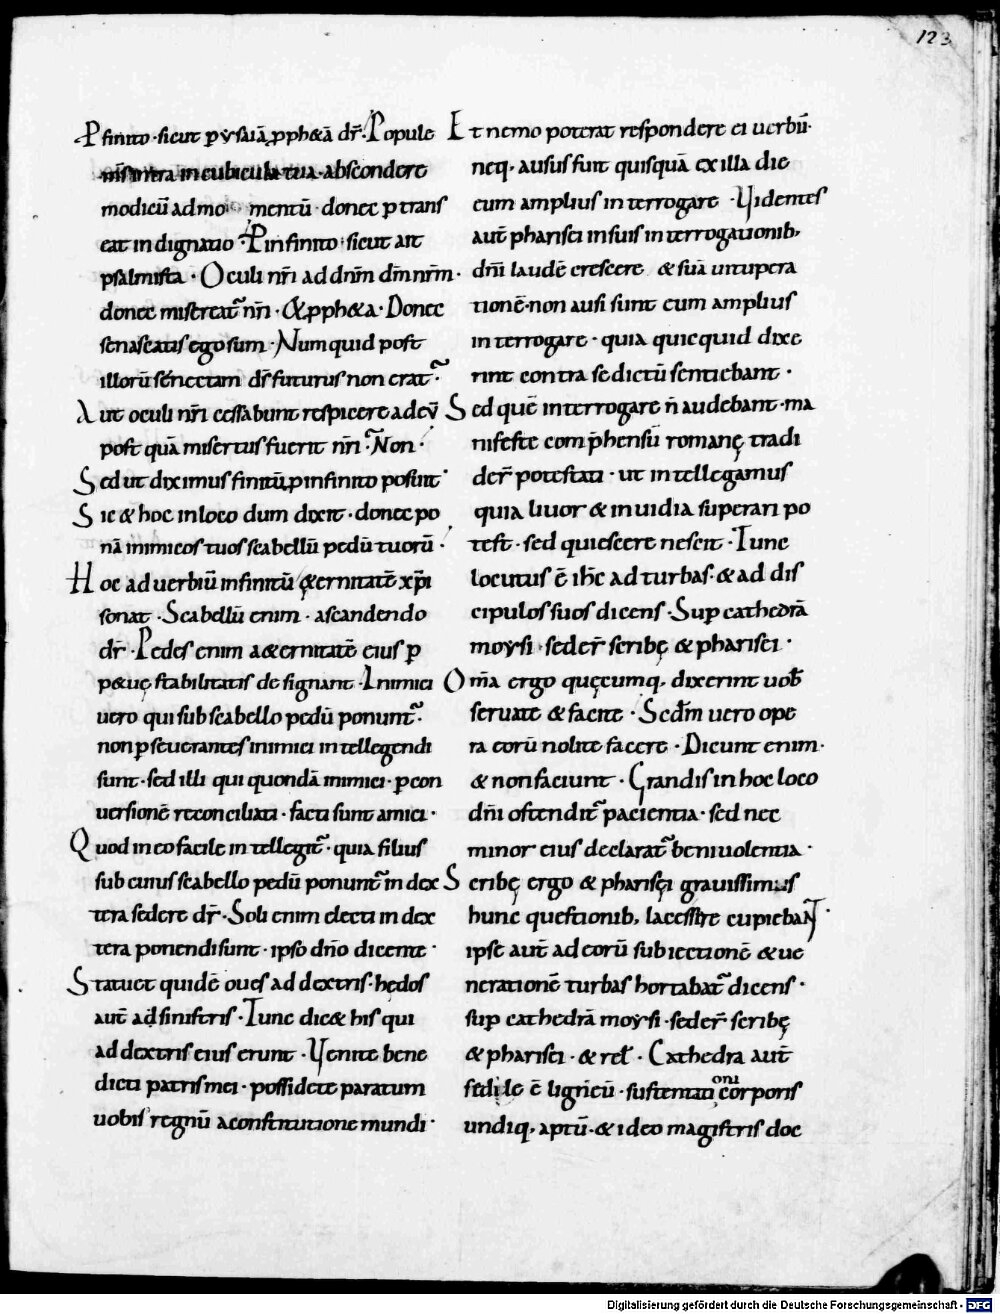 123
P finito · sicut p ysaiā ꝓph&ā dr̄ · Popule
ms̄ intra in cubicula tua · abscondere
modicū ad mo mentū · donec p trans
eat in dignatio · P infinito · sicut ait
psalmista · Oculi nr̄i ad dnm̄ dm̄ nrm̄ ·
donec misereat nr̄i · & ꝓph&a · Donec
senascatis ego sum · Numquid post
illorū senectam ds̄ futurus non erat ·
Aut oculi nr̄i cessabunt respicere ad eū
post quā misertus fuerit nr̄i · Non ·
Sed ut diximus finitū ꝓ infinito posuit ·
Sic & hoc in loco dum dixit · donec po
nā inimicos tuos scabellū pedū tuorū ·
Hoc ad uerbiū infinitū ęternitatē xp̄i
sonat · Scabellū enim · ascandendo
dr̄ · Pedes enim a&ernitatē eius p
p&uę stabilitatis de signant · Inimici
uero qui sub scabello pedū ponunt ·
non pseuerantes inimici intellegendi
sunt · sed illi qui quondā inimici · p con
uersionē reconciliati · facti sunt amici ·
Quod in eo facile intellegit · quia filius
sub cuius scabello pedū ponunt in dex
tera sedere dr̄ · Soli enim electi in dex
tera ponendi sunt · ipso dn̄o dicente ·
Statuet quidē oues ad dextris · hędos
aut̄ ad sinistris · Tunc dic& his qui
ad dextris eius erunt · Venite bene
dicti patris mei · possidete paratum
uobis regnū a constitutione mundi ·
Et nemo poterat respondere ei uerbū ·
neq, ausus fuit quisquā ex illa die
eum amplius in terrogare · Videntes
aut̄ pharisei in suis in terrogationib,
dn̄i laudē crescere & suā uitupera
tionē · non ausi sunt eum amplius
in terrogare · quia quicquid dixe
rint contra se dictū sentiebant ·
Sed quē interrogare n̄ audebant · ma
nifeste comp̄hensū romanę tradi
der̄ potestati · ut intellegamus
quia liuor & inuidia superari po
test · sed quiescere nescit · Tunc
locutus ē ih̄c ad turbas · & ad dis
cipulos suos dicens · Sup cathedrā
moysi · seder̄ scribę & pharisei ·
Om̄a ergo quęcumq, dixerint uob̄
seruate & facite · Scd̄m uero ope
ra eorū nolite facere · Dicunt enim ·
& non faciunt · Grandis in hoc loco
dn̄i ostendit pacientia · sed nec
minor eius declarat beniuolentia ·
Scribę ergo & pharisęi grauissimus
hunc questionib, lacessire cupiebant ·
ipse aut̄ ad eorū subiectionē & ue
nerationē turbas hortabat dicens ·
sup cathedrā moysi · seder̄ scribę
& pharisei · & rel̄ · Cathedra aut̄
sedile ē ligneū · sustentati oni corporis
undiq, aptū · & ideo magistris doc